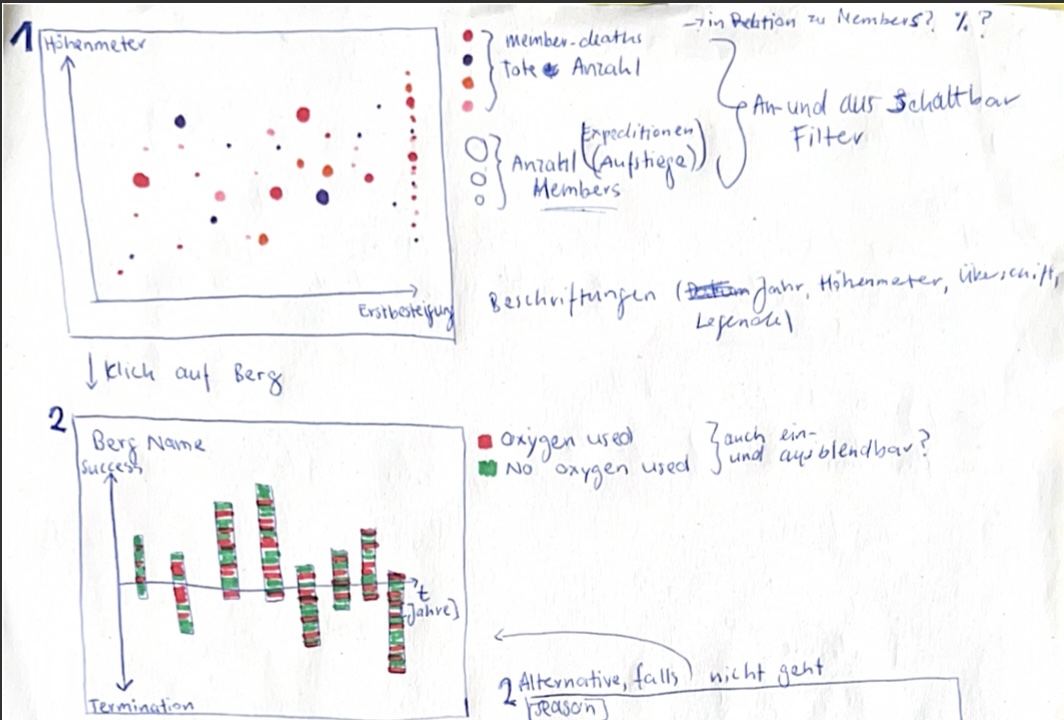 → in Relation zu Members? % ?
1
Höhenmeter
member-deaths
Tote Anzahl
An- und aus Schaltbar
Filter
Anzahl (Expeditionen
(Aufstiege))
Members
Erstbesteigung
Beschriftungen (Datum Jahr, Höhenmeter, Überschift,
Legende)
↓ Klick auf Berg
2
Berg Name
Success
Oxygen used
No oxygen used
auch ein-
und ausblendbar?
t
[Jahre]
Termination
2 Alternative, falls nicht geht
[season]